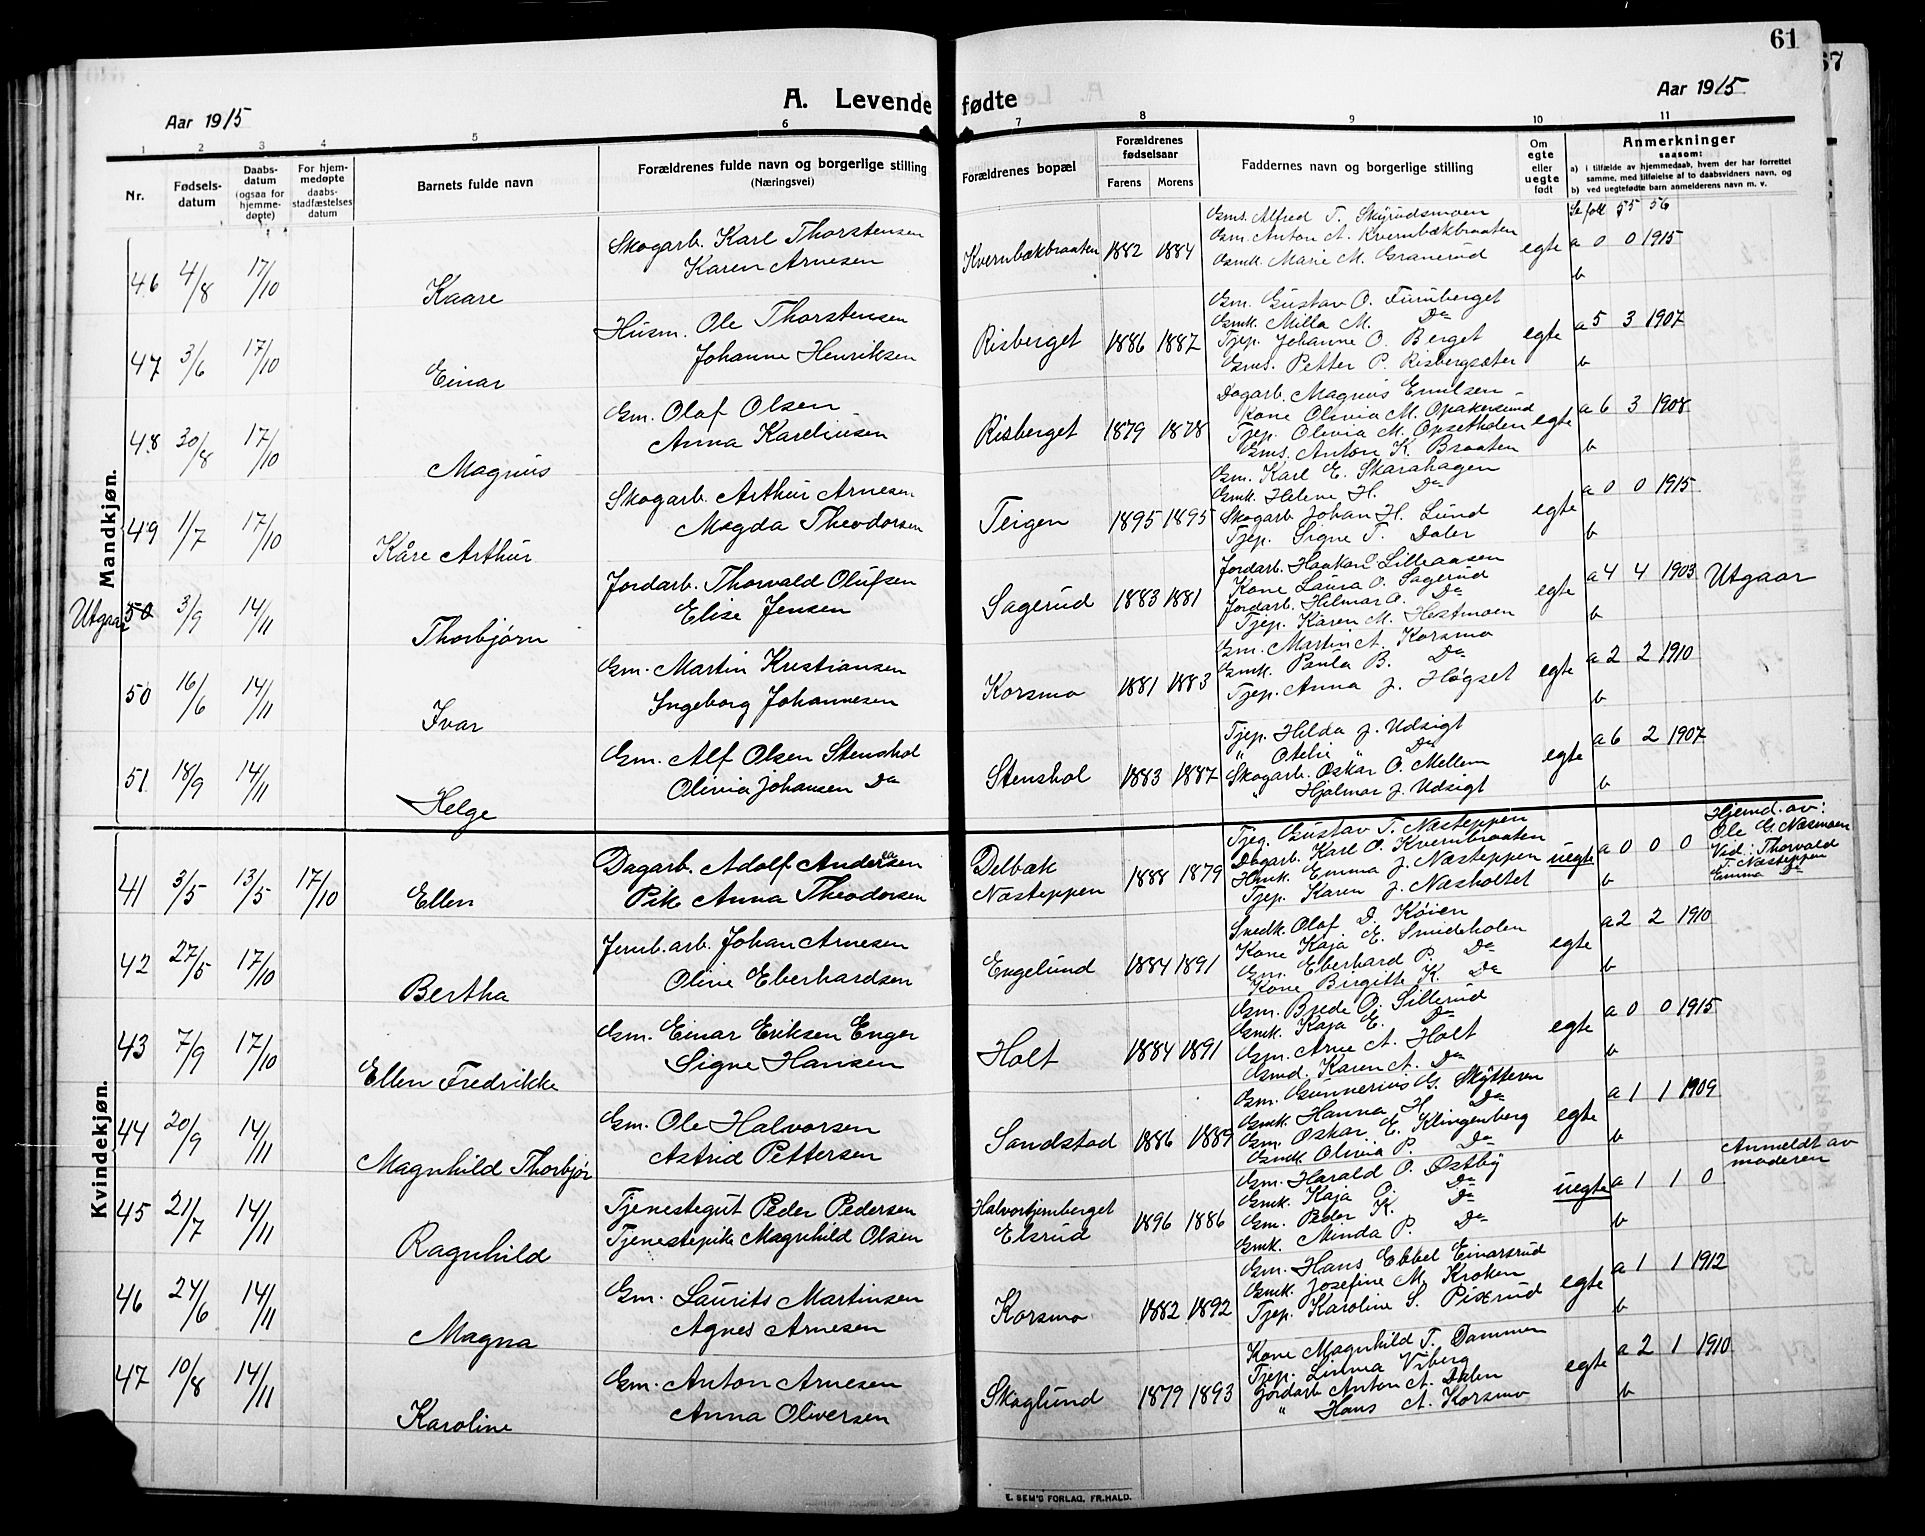 61
67
Aar 1915
A. Levende fødte
Aar 1915
1 2 3 4 5 6 7 8 9 10 11
Nr.
Fødsels-datum
Daabs-datum (ogsaa for hjemme-døpte)
For hjem-medøpte daabs-stadfæstelses datum
Barnets fulde navn
Forældrenes fulde navn og borgerlige stilling
(Næringsvei)
Forældrenes bopæl
Forældrenes fødselsaar
Farens Morens
Faddernes navn og borgerlige stilling
Om egte eller uegte født
Anmerkninger
saasom:
a) i tilfælde av hjemmedaab, hvem der har forrettet samme, med tilføielse af to daabsvidners navn, og
b) ved uegtefødte barn anmelderens navn m. v.
Se foll 55 56
Mandkjøn.
46 4/8 17/10 Kaare
Skogarb. Karl Thorstensen
Karen Arnesen
Kvernbækbraaten 1882 1884
Gms. Alfred T. Skyrudsmoen
Gm. Anton A. Kvernbækbraaten
Gmk. Marie M. Granerud
egte a 0 0 1915
b
47 3/6 17/10 Einar
Husm. Ole Thorstensen
Johanne Henriksen
Risberget 1886 1887
Gm. Gustav O. Furuberget
Gmk. Milla M. Do
Tjep. Johanne O. Berget
Gms. Petter P. Risbergsæter
egte a 5 3 1907
b
48 30/8 17/10 Magnus
Gm. Olaf Olsen
Anna Karelinsen
Risberget 1879 1878
Dagarb. Magnus Emilsen
Kone Olivia M. Opakersund
Tjep. Olivia M. Opsetholen
Gms. Anton K. Braaten
egte a 6 3 1908
b
49 1/7 17/10 Kåre Arthur
Skogarb. Arthur Arnesen
Magda Theodorsen
Teigen 1895 1895
Gm. Karl E. Skarahagen
Gmk. Helene H. Do
Skogarb. Johan H. Lund
Tjep. Signe T. Daler
egte a 0 0 1915
b
Utgaar 50 3/9 14/11 Thorbjørn
Jordarb. Thorvald Olufsen
Elise Jensen
Sagerud 1883 1881
Jordarb. Haakon Lilleaasen
Kone Laura O. Sagerud
Jordarb. Hilmar O. Do
Tjep. Karen M. Hestmoen
egte a 4 4 1903 Utgaar
b
50 16/6 14/11 Ivar
Gm. Martin Kristiansen
Ingeborg Johannesen
Korsmo 1881 1883
Gm. Martin A. Korsmo
Gmk. Paula B. Do
Tjep. Anna J. Høgset
egte a 2 2 1910
b
51 18/9 14/11 Helge
Gm. Alf Olsen Stenshol
Olivia Johansen Do
Stenshol 1883 1887
Tjep. Hilda J. Udsigt
" Otelie " Do
Skogarb. Oskar O. Mellem
" Hjalmar J. Udsigt
egte a 6 2 1907
b
Kvindekjøn.
41 3/5 13/5 17/10 Ellen
Dagarb. Adolf Andersen
Pike Anna Theodorsen
Delbæk
Næsteppen 1888 1879
Tjeg. Gustav T. Næsteppen
Dagarb. Karl O. Kvernbraaten
Hmk. Emma J. Næsteppen
Tjep. Karen J. Næsholtet
uegte a 0 0 0
b
Hjemd. av:
Ole G. Næsmoen
Vid.: Thorvald
T. Næsteppen
Emma Do
42 27/5 17/10 Bertha
Jernb.arb. Johan Arnesen
Oline Eberhardsen
Engelund 1884 1891
Snedk. Olaf D. Køien
Kone Kaja E. Smideholen
Gm. Eberhard P. Do
Kone Birgitte K. Do
egte a 2 2 1910
b
43 7/9 17/10 Ellen Fredrikke
Gm. Einar Eriksen Enger
Signe Hansen
Holt 1884 1891
Gm. Brede O. Sillerud
Gmk. Kaja E. Do
Gm. Arne A. Holt
Gmd. Karen A. Do
egte a 0 0 1915
b
44 20/9 14/11 Magnhild Thorbjør
Gm. Ole Halvorsen
Astrid Pettersen
Sandstad 1886 1889
Gm. Gunnerius G. Skytteren
Gmk. Hanna H. Do
Gm. Oskar E. Klingenberg
Gmk. Olivia P. Do
egte a 1 1 1909
b
45 21/7 14/11 Ragnhild
Tjenestegut Peder Pedersen
Tjenestepike Magnhild Olsen
Halvortjernberget
Elsrud 1896 1886
Gm. Harald O. Østby
Gmk. Kaja O. Do
Gm. Peder K. Do
Gmk. Minda P. Do
uegte a 1 1 0
b
Anmeldt av
moderen
46 24/6 14/11 Magna
Gm. Laurits Martinsen
Agnes Arnesen
Korsmo 1882 1892
Gm. Hans Ebbel Einarsrud
Gmk. Josefine M. Kroken
Tjep. Karoline S. Pixrud
egte a 1 1 1912
b
47 10/8 14/11 Karoline
Gm. Anton Arnesen
Anna Oliversen
Skoglund 1879 1893
Kone Magnhild T. Dammen
Tjep. Linna Viberg
Jordarb Anton A. Dalen
" Hans A. Korsmo
egte a 2 1 1910
b
E. SEM'S FORLAG, FR.HALD.